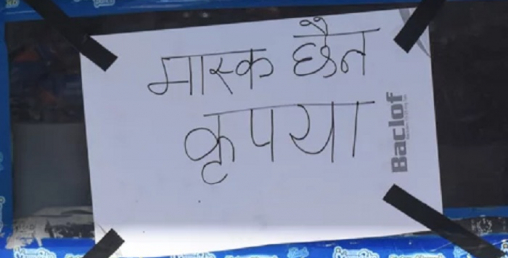 मास्क छैन
कृपया
Baclof